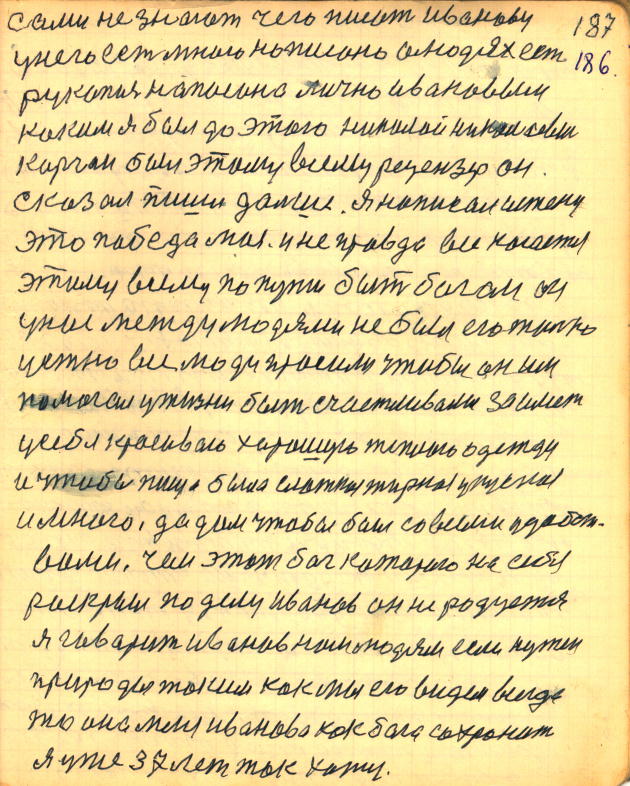 сами не знают чего писат иванову 187
унего ест много написано о людях ест 186.
рукопия написона лично ивановым
каким я был до этого николой
карчан был этому всему рецензер он.
сказал пиши далше. Я написал истену
это победа моя. и не правда все касается
этому всему по пути быт богом он
унас между людями не был его толко
устно все люди просили чтобы он им
помогал ужизни быт счастливами заимет
усебя красиваю харошую теплаю одежду
и чтобы пища была слаткая жирная укусная
и много, да дом чтобы был совсеми удобст-
вами. Чем этот бог которого на себя
раскрыл по делу иванов он не родуется
я гаварит иванов нам людям если нужен
природы таким как мы его видем везде
то она меня иванова как бога сохронит
я уже 37 лет так хожу.